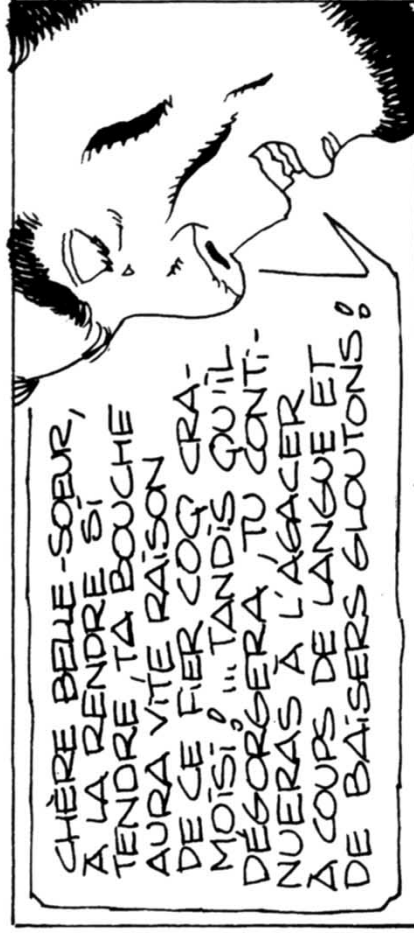 CHÈRE BELLE-SOEUR,
À LA RENDRE SI
TENDRE, TA BOUCHE
AURA VITE RAISON
DE CE FIER COQ CRA-
MOISI! ... TANDIS QU'IL
DÉGORGERA, TU CONTI-
NUERAS À L'AGACER
À COUPS DE LANGUE ET
DE BAISERS GLOUTONS!